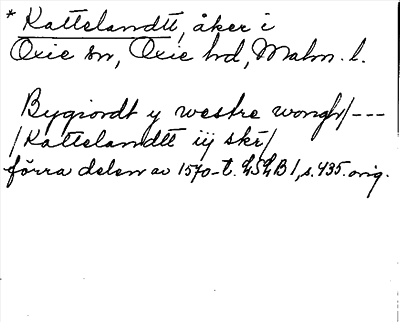 * Kattelandtt, åker i
Oxie sn, Oxie hd, Malm. l.
Bygiordt y westre wongh/---
/Kattelandtt iij skr/
förra delen av 1570-t. LSLB 1, s. 435. orig.